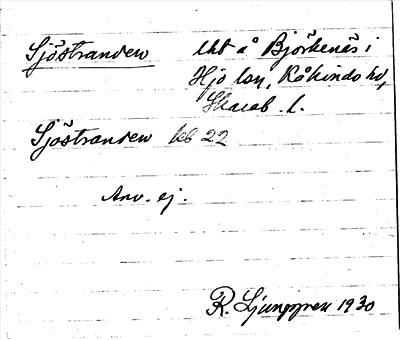 Sjöstranden lht å Björkenäs i
Hjo lsn, Kåkinds hd,
Skarab. l.
Sjöstranden kb 22
Anv. ej.
R. Ljunggren 1930